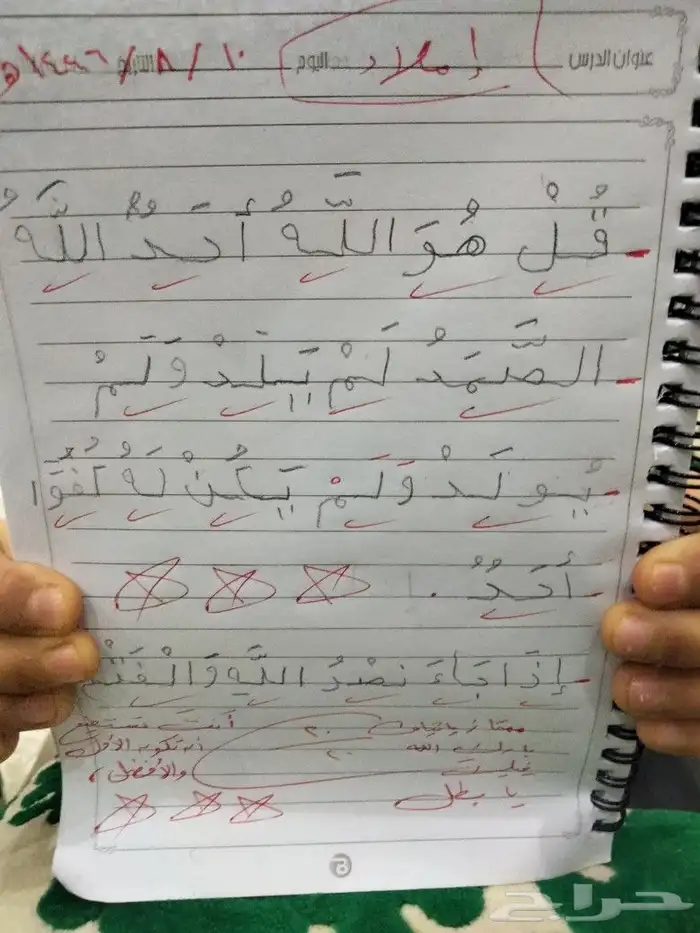 عنوان الدرس إملاء اليوم التاريخ ١٠ / ٨ / ١٤٤٦ هـ
قُلْ هُوَ اللَّهُ أَحَدٌ اللَّهُ
الصَّمَدُ لَمْ يَلِدْ وَلَمْ
يُولَدْ وَلَمْ يَكُنْ لَهُ كُفُوًا
أَحَدٌ .
إِذَا جَاءَ نَصْرُ اللَّهِ وَالْفَتْحُ
ممتاز ٢٠ أنت تستحق
بارك الله ٢٠ أن تكون الأول
فيك والأفضل
يا بطل
حراج